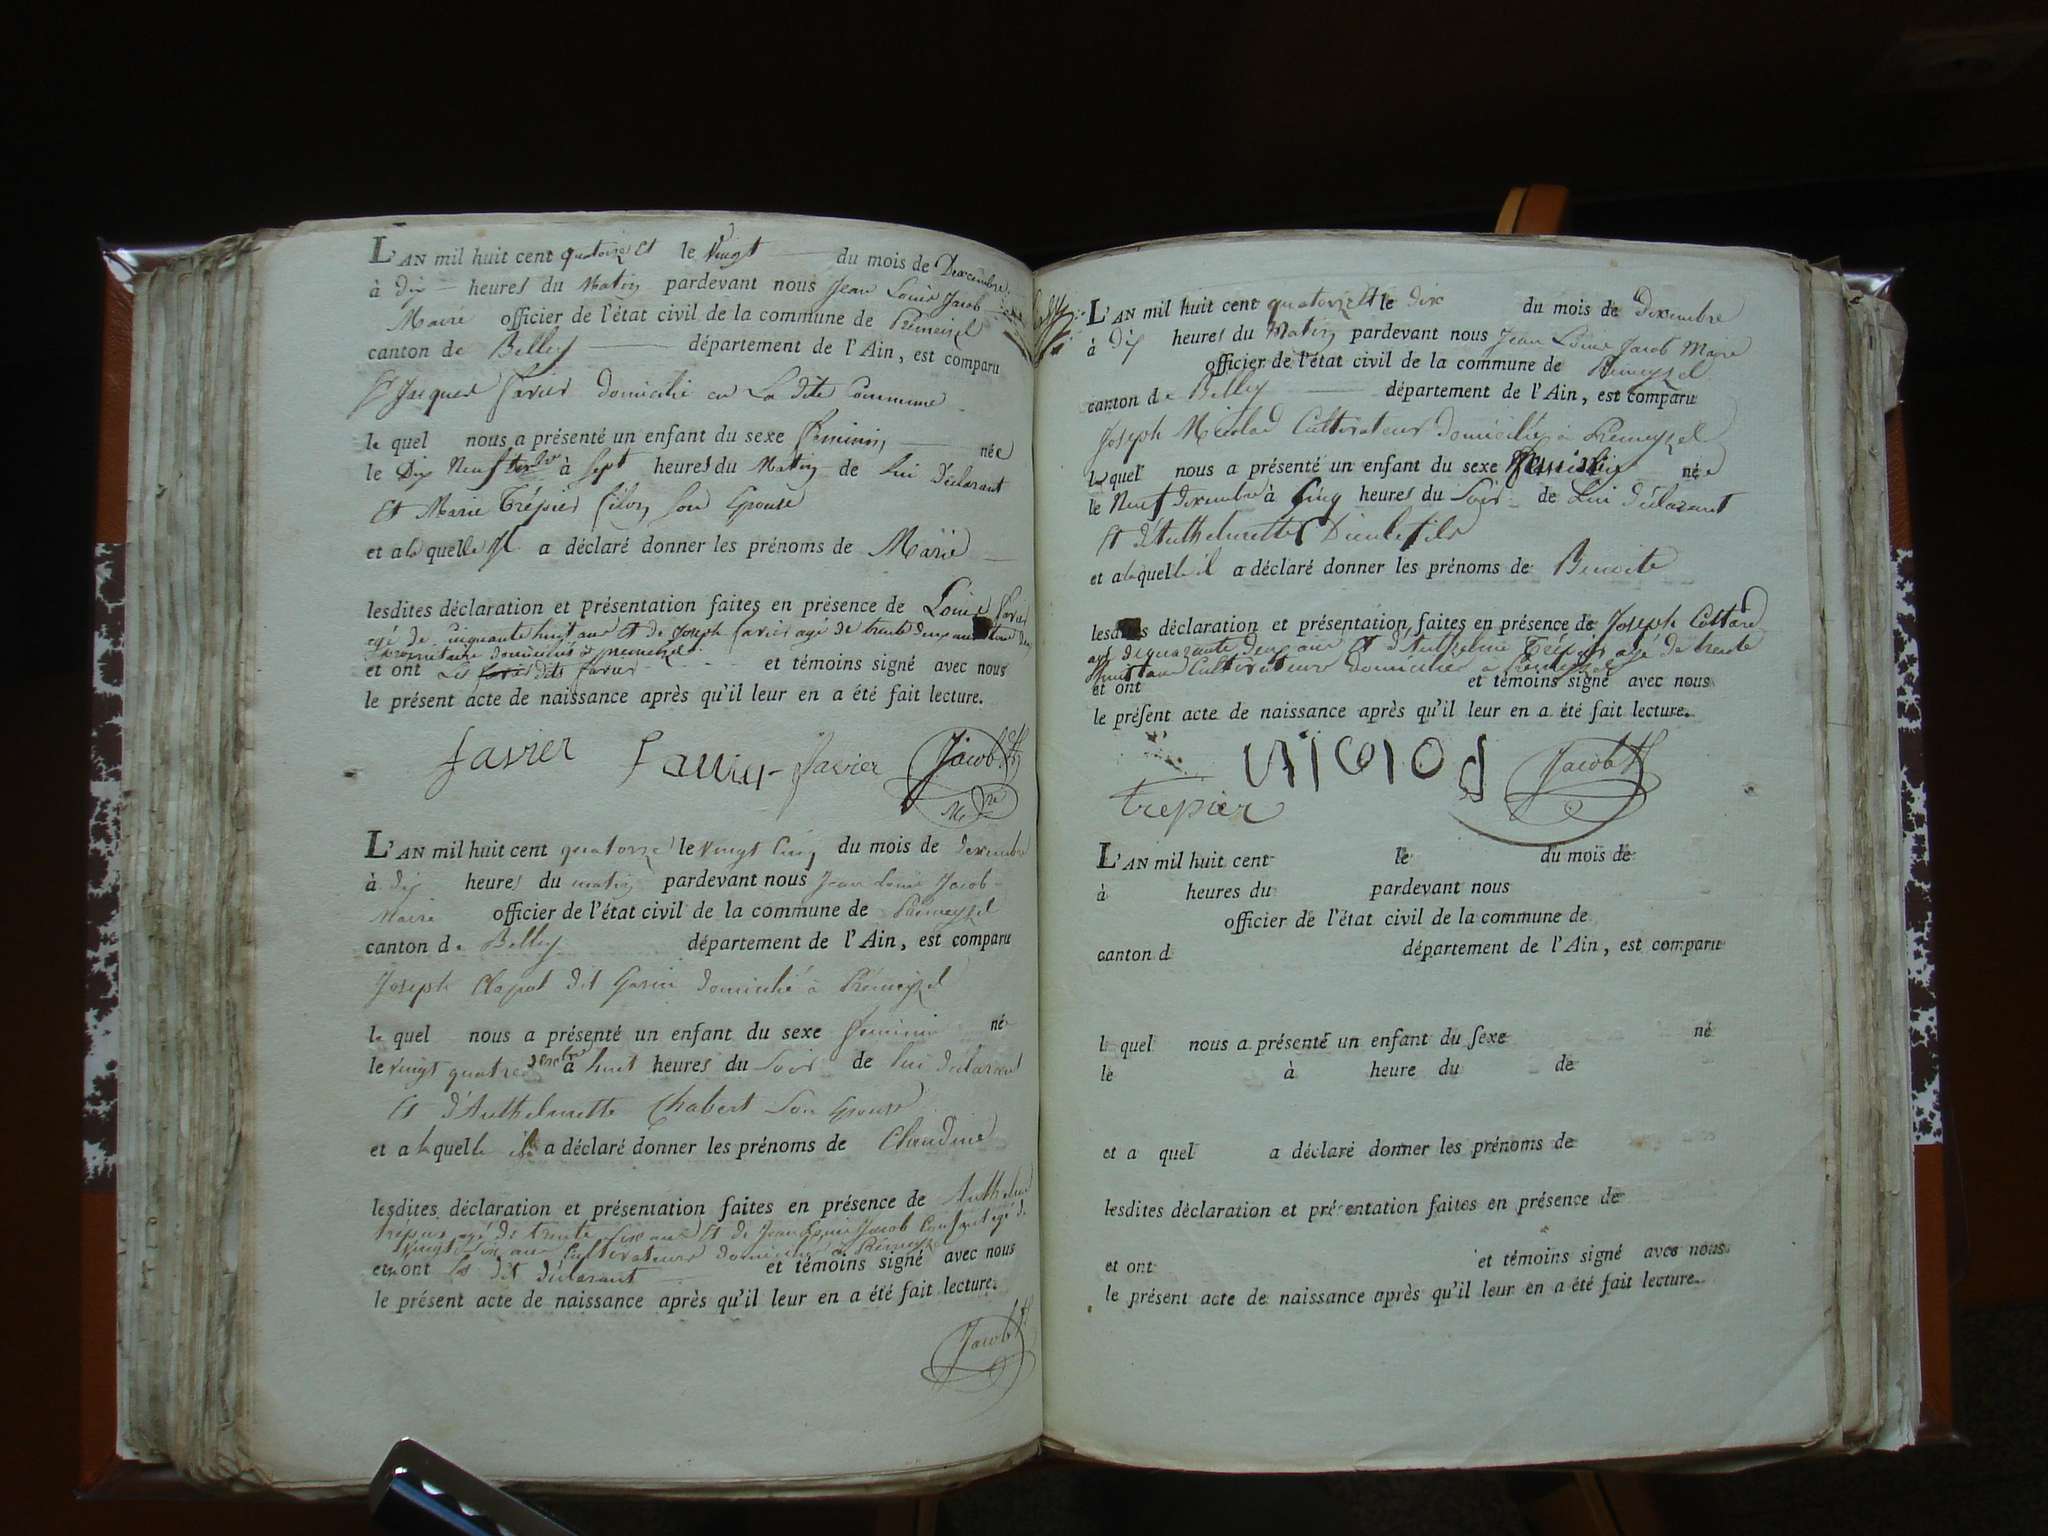 L'AN mil huit cent quatorze et le Vingt du mois de Dexcembre
à dix heures du Matin pardevant nous Jean Louis Jacob
Maire officier de l'état civil de la commune de Prémeisel
canton de Belley département de l'Ain, est comparu
Jacques favier domicilié en La dite Commune
le quel nous a présenté un enfant du sexe feminin née
le Dix Neuf à Sept heures du Matin de lui Déclarant
Et Marie Trépier son Epouse
et a la quelle il a déclaré donner les prénoms de Marie
lesdites déclaration et présentation faites en présence de Louis favier
agé de cinquante huit ans Et de Joseph favier agé de trente deux ans
propriétaire domiciliés à premeizel
et ont Les dits favier et témoins signé avec nous
le présent acte de naissance après qu'il leur en a été fait lecture.
favier favier favier Jacob
Mre
L'AN mil huit cent quatorze le vingt Cinq du mois de dexembre
à dix heures du matin pardevant nous Jean Louis Jacob
Maire officier de l'état civil de la commune de Prémeyzel
canton de Belley département de l'Ain, est comparu
Joseph Clapot dit Garin domicilié à Prémeyzel
le quel nous a présenté un enfant du sexe feminin née
le vingt quatre à huit heures du Soir de lui déclarant
Et d'Anthelmette Chabert Son Epouse
et a la quelle il a déclaré donner les prénoms de Claudine
lesdites déclaration et présentation faites en présence de Anthelme
trépier agé de trente six ans Et de Jean Louis Jacob agé de
vingt six ans Cultivateurs domiciliés à Prémeyzel
et ont le dit déclarant et témoins signé avec nous
le présent acte de naissance après qu'il leur en a été fait lecture.
Jacob
L'AN mil huit cent quatorze Et le dix du mois de Dexembre
à dix heures du Matin pardevant nous Jean Louis Jacob Maire
officier de l'état civil de la commune de Prémeyzel
canton de Belley département de l'Ain, est comparu
Joseph Nicolad Cultivateur domicilié à Prémeyzel
le quel nous a présenté un enfant du sexe féminin née
le Neuf dexembre à Cinq heures du Soir de Lui déclarant
Et d'Anthelmette Dieulefils
et a laquelle il a déclaré donner les prénoms de Benoite
lesdites déclaration et présentation faites en présence de Joseph Cottard
agé de quarante deux ans Et d'Anthelme Trépier agé de trente
huit ans Cultivateurs domiciliés à Prémeyzel
et ont et témoins signé avec nous
le présent acte de naissance après qu'il leur en a été fait lecture.
Nicolod Jacob
trepier
L'AN mil huit cent le du mois de
à heures du pardevant nous
officier de l'état civil de la commune de
canton d département de l'Ain, est comparu
l quel nous a présenté un enfant du sexe né
le à heure du de
et a quel a déclaré donner les prénoms de
lesdites déclaration et présentation faites en présence de
et ont et témoins signé avec nous
le présent acte de naissance après qu'il leur en a été fait lecture.